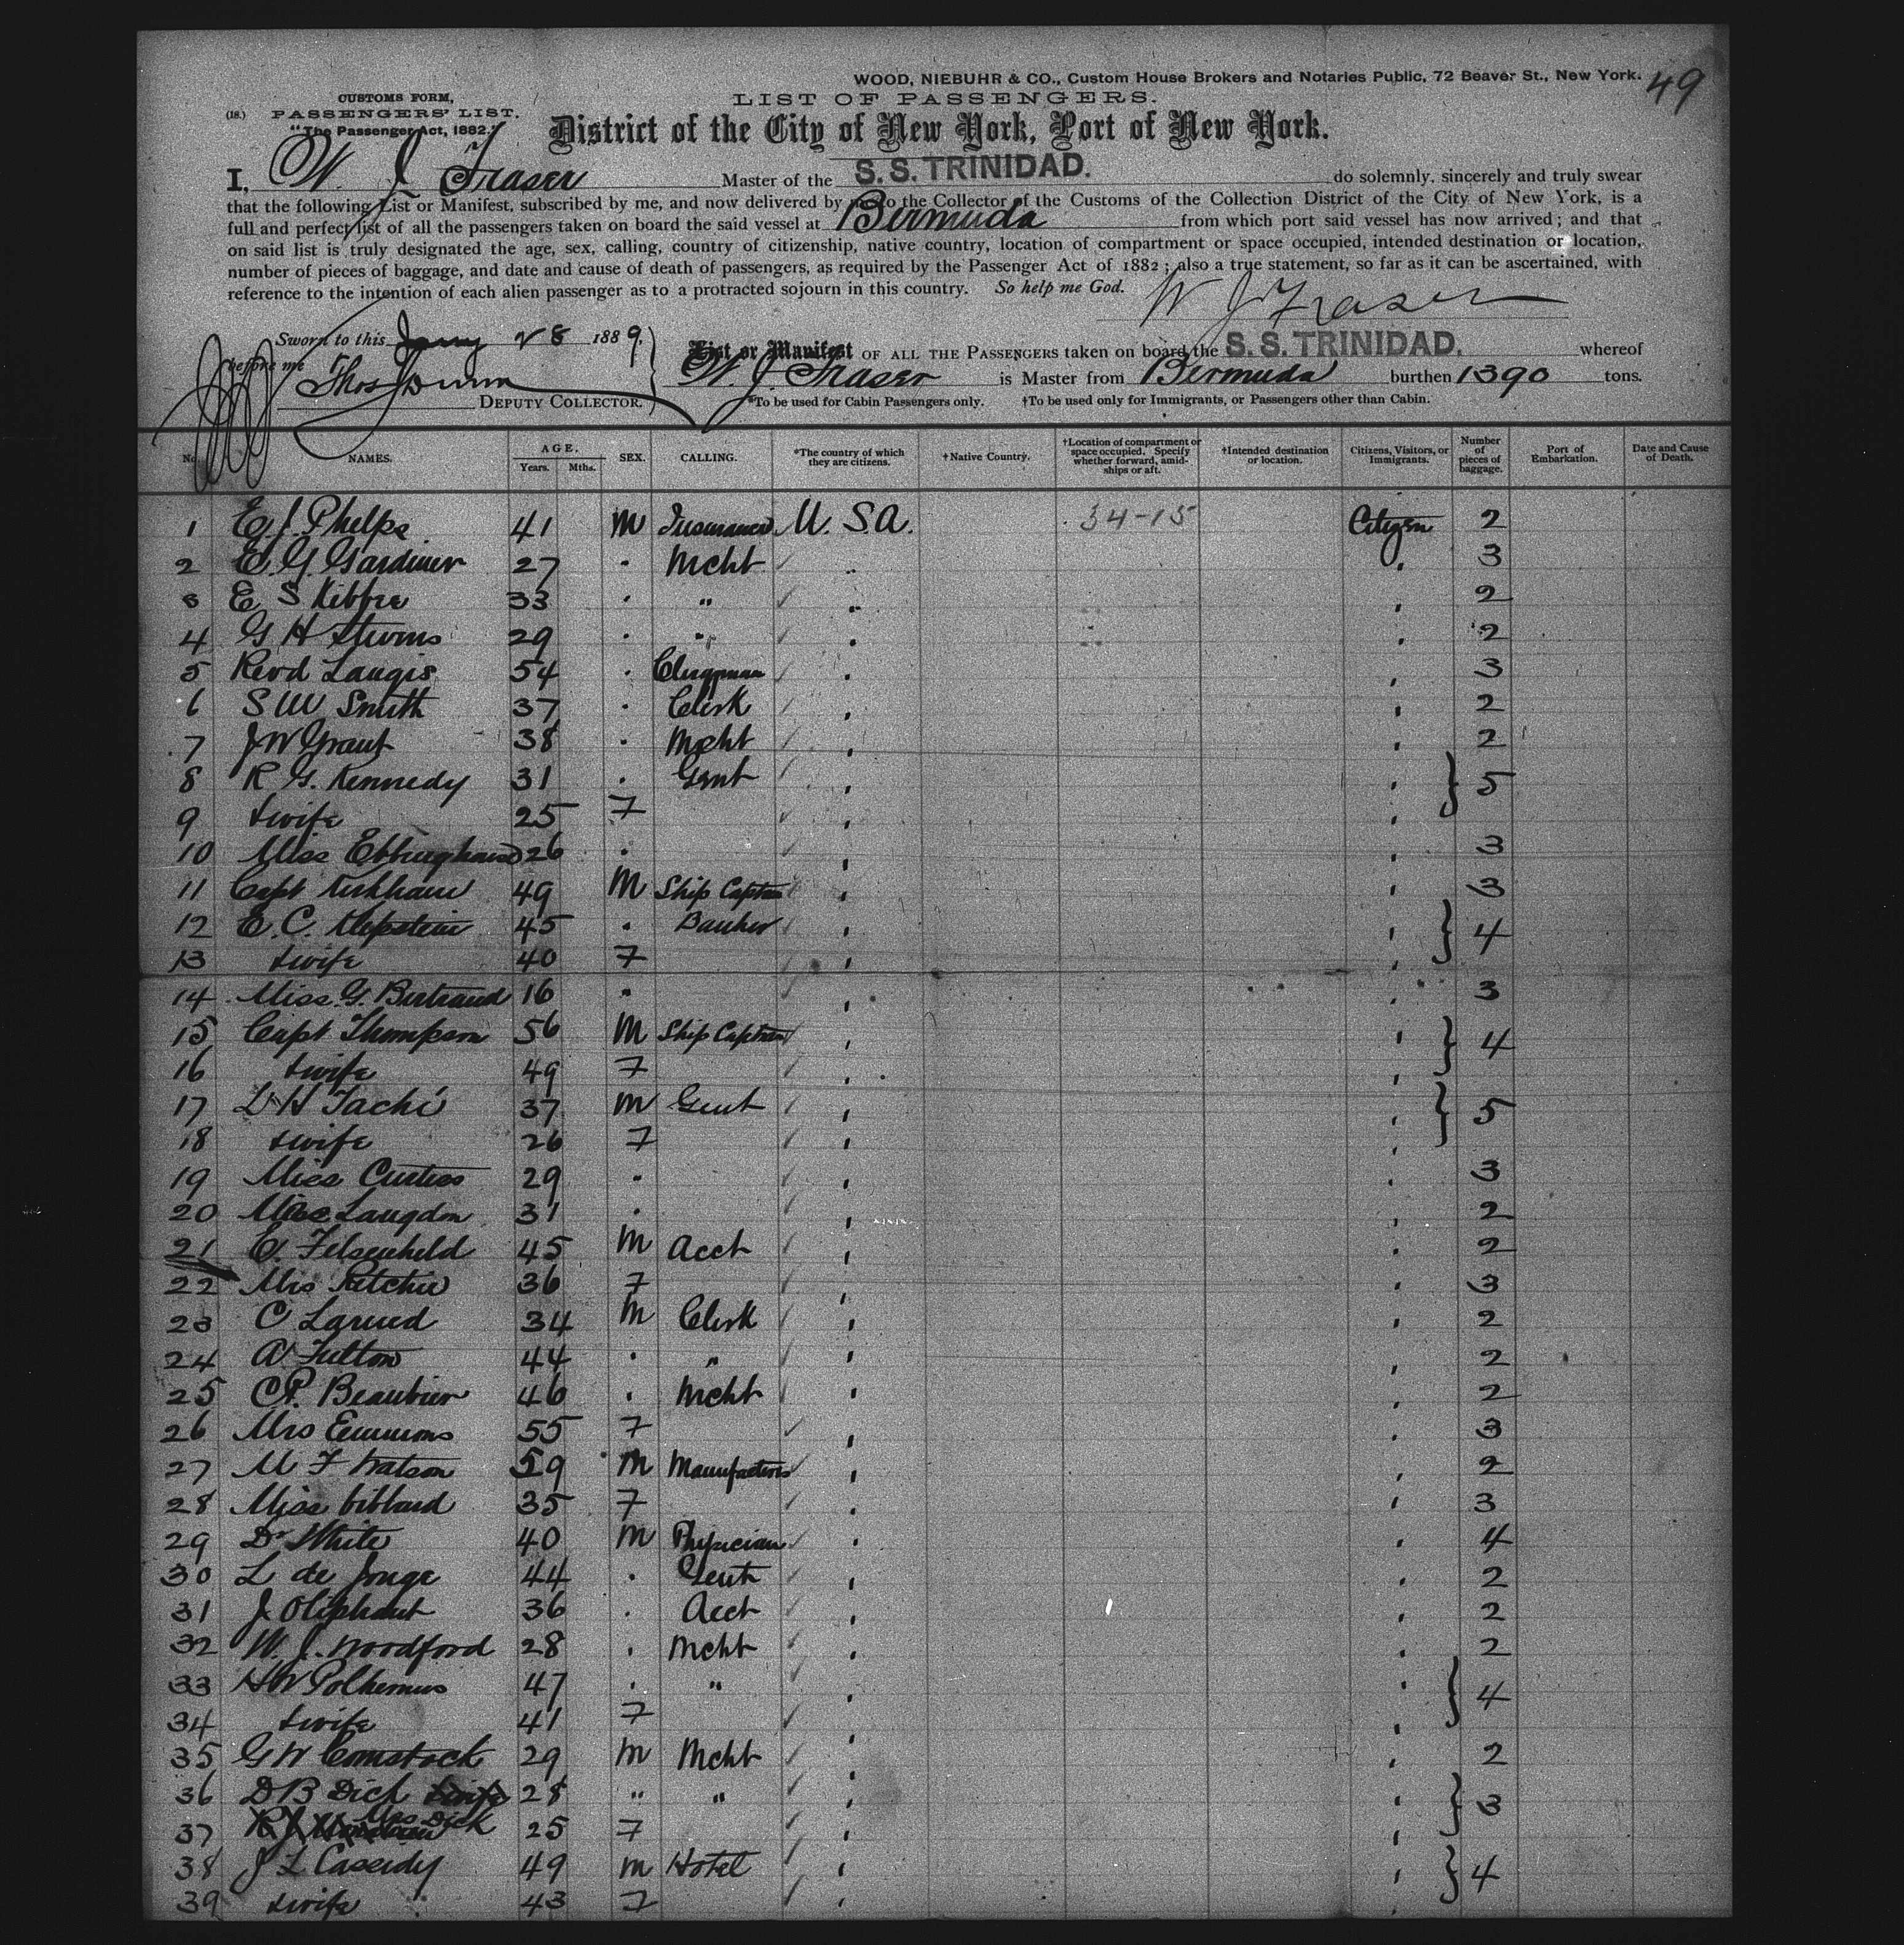 WOOD, NIEBUHR & CO., Custom House Brokers and Notaries Public, 72 Beaver St., New York.
49
CUSTOMS FORM,
LIST OF PASSENGERS.
(18.) PASSENGERS' LIST.
"The Passenger Act, 1882."
District of the City of New York, Port of New York.
I, W. J. Fraser Master of the S. S. TRINIDAD. do solemnly, sincerely and truly swear
that the following List or Manifest, subscribed by me, and now delivered by me to the Collector of the Customs of the Collection District of the City of New York, is a
full and perfect list of all the passengers taken on board the said vessel at Bermuda from which port said vessel has now arrived; and that
on said list is truly designated the age, sex, calling, country of citizenship, native country, location of compartment or space occupied, intended destination or location,
number of pieces of baggage, and date and cause of death of passengers, as required by the Passenger Act of 1882; also a true statement, so far as it can be ascertained, with
reference to the intention of each alien passenger as to a protracted sojourn in this country. So help me God.
W J Fraser
Sworn to this Jany 28 1889.
before me Thos Dunn
DEPUTY COLLECTOR.
List or Manifest OF ALL THE PASSENGERS taken on board the S. S. TRINIDAD. whereof
W. J. Fraser is Master from Bermuda burthen 1390 tons.
*To be used for Cabin Passengers only. †To be used only for Immigrants, or Passengers other than Cabin.
No. NAMES. AGE. Years. Mths. SEX. CALLING. *The country of which they are citizens. †Native Country. †Location of compartment or space occupied. Specify whether forward, amidships or aft. †Intended destination or location. Citizens, Visitors, or Immigrants. Number of pieces of baggage. Port of Embarkation. Date and Cause of Death.
1 E. J. Phelps 41 M Insurance U. S. A. 34-15 Citizen 2
2 E. G. Gardiner 27 " Mcht " " 3
3 E S Kibbre 33 " " " " 2
4 G H Stevens 29 " " " " 2
5 Revd Laugis 54 " Clergyman " " 3
6 S W Smith 37 " Clerk " " 2
7 J W Grant 38 " Mcht " " 2
8 R G. Kennedy 31 " Gent " " } 5
9 & wife 25 F " "
10 Miss Ebbinghaus 26 " " " 3
11 Capt Kirkham 49 M Ship Captain " " 3
12 E. C. Klepstein 45 " Banker " " } 4
13 & wife 40 F " "
14 Miss G. Bertrand 16 " " " 3
15 Capt Thompson 56 M Ship Captain " " } 4
16 & wife 49 F " "
17 L H Taché 37 M Gent " " } 5
18 & wife 26 F " "
19 Miss Curtiss 29 " " " 3
20 Miss Langdon 31 " " " 2
21 E. Felsenheld 45 M Acct " " 2
22 Mrs Ritchie 36 F " " 3
23 C Larued 34 M Clerk " " 2
24 A Fulton 44 " " " " 2
25 C. P. Beaubien 46 " Mcht " " 2
26 Mrs Emmons 55 F " " 3
27 M F Watson 59 M Manufacturer " " 2
28 Miss Gibbard 35 F " " 3
29 Dr White 40 M Physician " " 4
30 L de Jonge 44 " Gent " " 2
31 J Oliphant 36 " Acct " " 2
32 W. J. Woodford 28 " Mcht " " 2
33 H W Polhemus 47 " " " " } 4
34 & wife 41 F " "
35 G W Comstock 29 M Mcht " " 2
36 D B Dick 28 " " " " } 3
37 Mrs Dick 25 F " "
38 J L Cassidy 49 M Hotel " " } 4
39 & wife 43 F " "